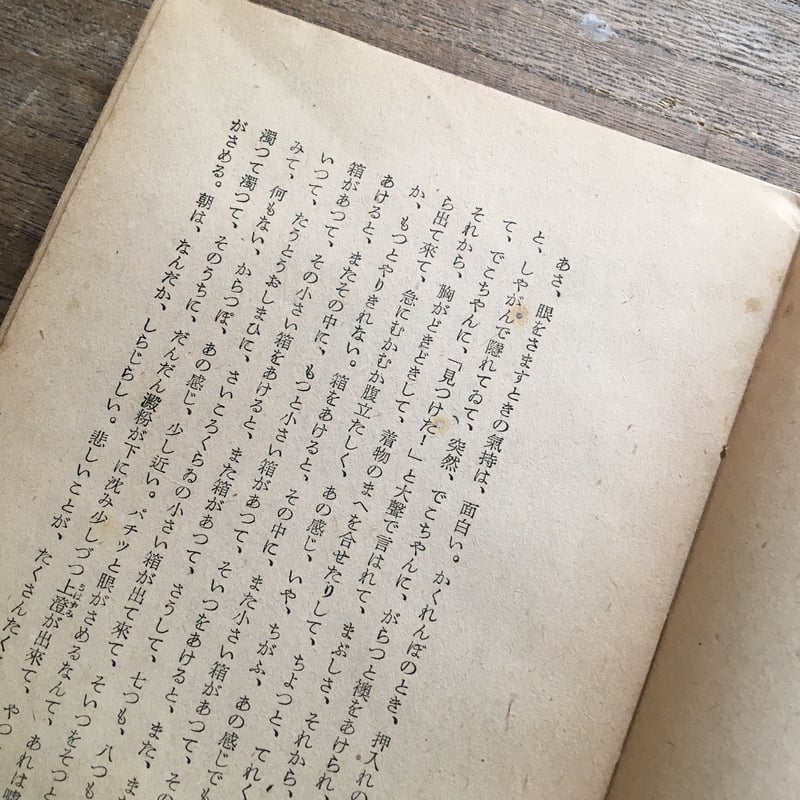 あさ、眼をさますときの氣持は、面白い。かくれんぼのとき、押入れの
と、しやがんで隱れてゐて、突然、でこちやんに、がらつと襖をあけられ、
て、でこちやんに、「見つけた!」と大聲で言はれて、まぶしさ、それから、
それから、胸がどきどきして、着物のまへを合せたりして、ちよつと、てれく
ら出て來て、急にむかむか腹立たしく、あの感じ、いや、ちがふ、あの感じでも
か、もつとやりきれない。箱をあけると、その中に、また小さい箱があつて、その
あけると、またその中に、もつと小さい箱があつて、そいつをあけると、また、また
箱があつて、その小さい箱をあけると、また箱があつて、さうして、七つも、八つも
いつて、たうとうおしまひに、さいころくらゐの小さい箱が出て來て、そいつをそつと
みて、何もない、からつぽ、あの感じ、少し近い。パチッと眼がさめるなんて、あれは嘘
濁つて濁つて、そのうちに、だんだん澱粉が下に沈み少しづつ上澄が出來て、やつ
がさめる。朝は、なんだか、しらじらしい。悲しいことが、たくさんたく